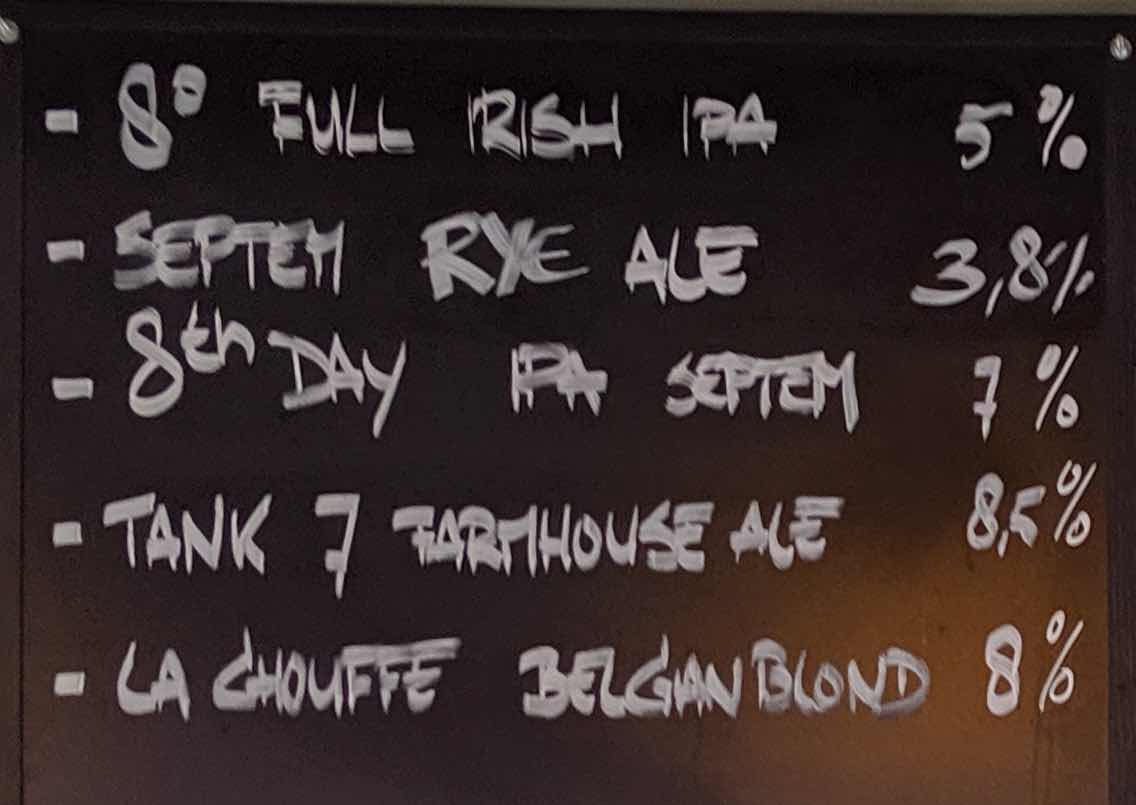 - 8° FULL IRISH IPA 5%
- SEPTEM RYE ALE 3,8%
- 8th DAY IPA SEPTEM 7%
- TANK 7 FARMHOUSE ALE 8,5%
- LA CHOUFFE BELGIAN BLOND 8%